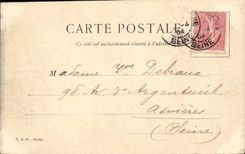 CARTE POSTALE
Ce côté est exclusivement réservé à l'adresse
SEINE
Madame Yve Debraux
98 Av. d'Argenteuil
Asnières
(Seine)